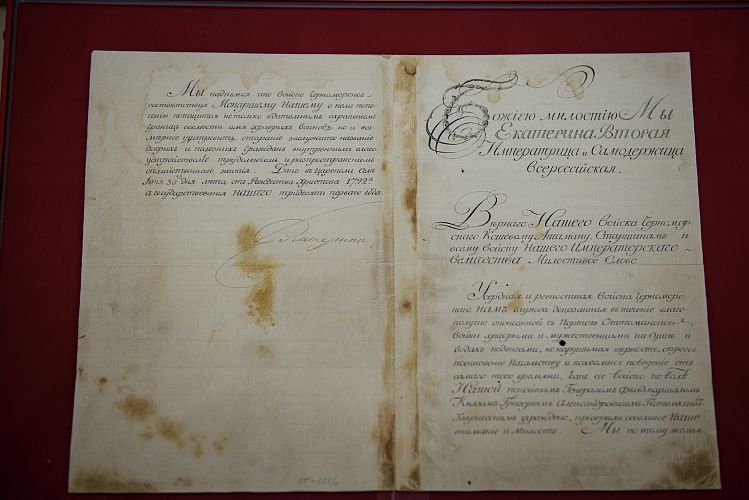 Мы надѣемся что Войско Черноморское
соотвѣтствуя Монаршему Нашему о немъ попе-
ченію потщится не только бдительнымъ охраненіемъ
границъ соблюсти имя храбрыхъ воиновъ но и все-
мѣрное употребитъ стараніе заслужить названіе
добрыхъ и полезныхъ гражданъ внутреннимъ благо
устройствомъ трудолюбіемъ и распространеніемъ
семейственнаго житія. Дано въ Царскомъ Селѣ
Іюня 30 дня лѣта отъ Рождества Христова 1792го
а государствованія Нашего тридесять перваго года
Екатерина
Божіею милостію Мы
Екатерина Вторая
Императрица и Самодержица
Всероссійская.
Вѣрнаго Нашего Войска Черномор-
скаго Кошевому Атаману Старшинамъ и
всему Войску Нашего Императорскаго
Величества Милостивое Слово
Усердная и ревностная Войска Черномор-
скаго Намъ служба доказанная въ теченіе благо
получно оконченной съ Портою Оттоманскою
войны храбрыми и мужественными на Сушѣ и
водахъ подвигами, не нарушимая вѣрность, строгое
повиновеніе Начальству и похвальное поведеніе отъ
самаго того времяни, какъ сіе войско по волѣ
Нашей покойнымъ Генераломъ Фельдмаршаломъ
Княземъ Григорьемъ Александровичемъ Потемкинымъ
Таврическимъ учреждено, пріобрѣли особливое Наше
вниманіе и Милость. Мы по тому желая